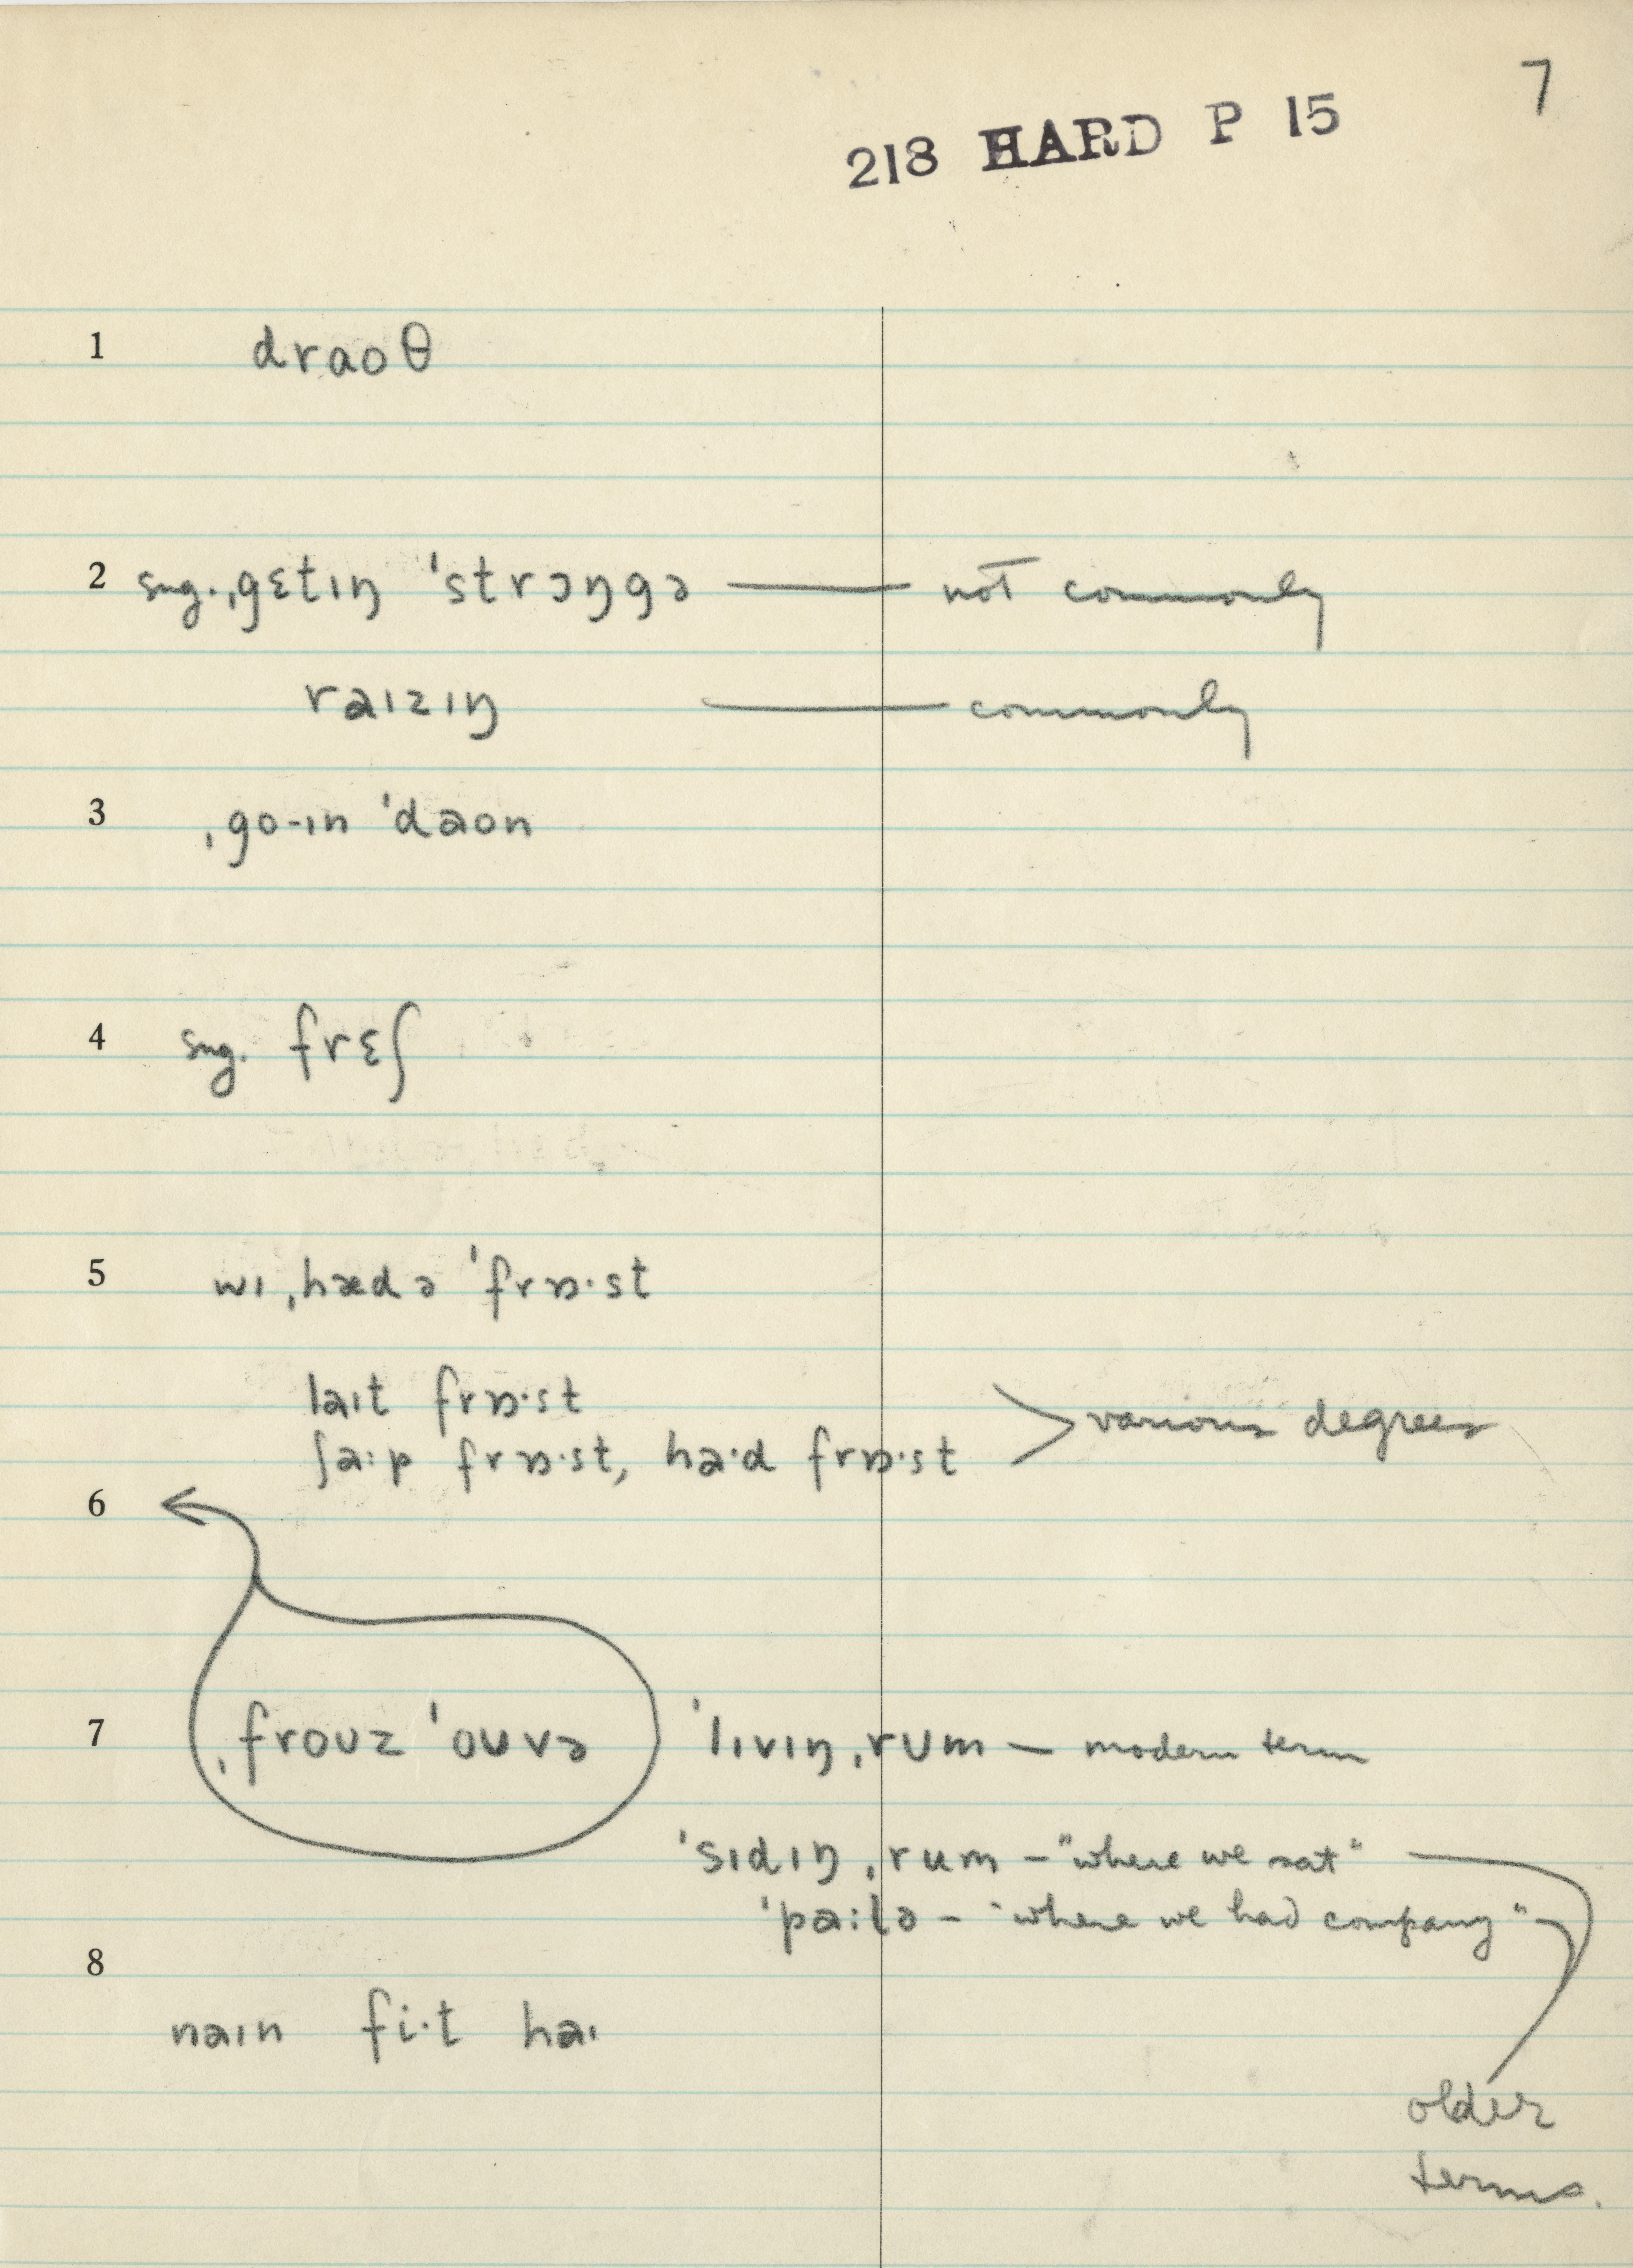 7
218 HARD P 15
1 draoθ
2 sug. ˌgɛtɪŋ ˈstrɔŋgə — not commonly
raɪzɪŋ — commonly
3 ˌgo-ɪn ˈdaon
4 sug. frɛʃ
5 wɪ ˌhæd ə ˈfrɒ·st
laɪt frɒ·st
ʃa:p frɒ·st, ha·d frɒ·st > various degrees
6
7 ˌfroʊz ˈoʊvə ˈlɪvɪŋ ˌrʊm — modern term
ˈsɪdɪŋ ˌrum – "where we sat"
ˈpa:lə – "where we had company"
8
naɪn fi·t haɪ
older
terms.